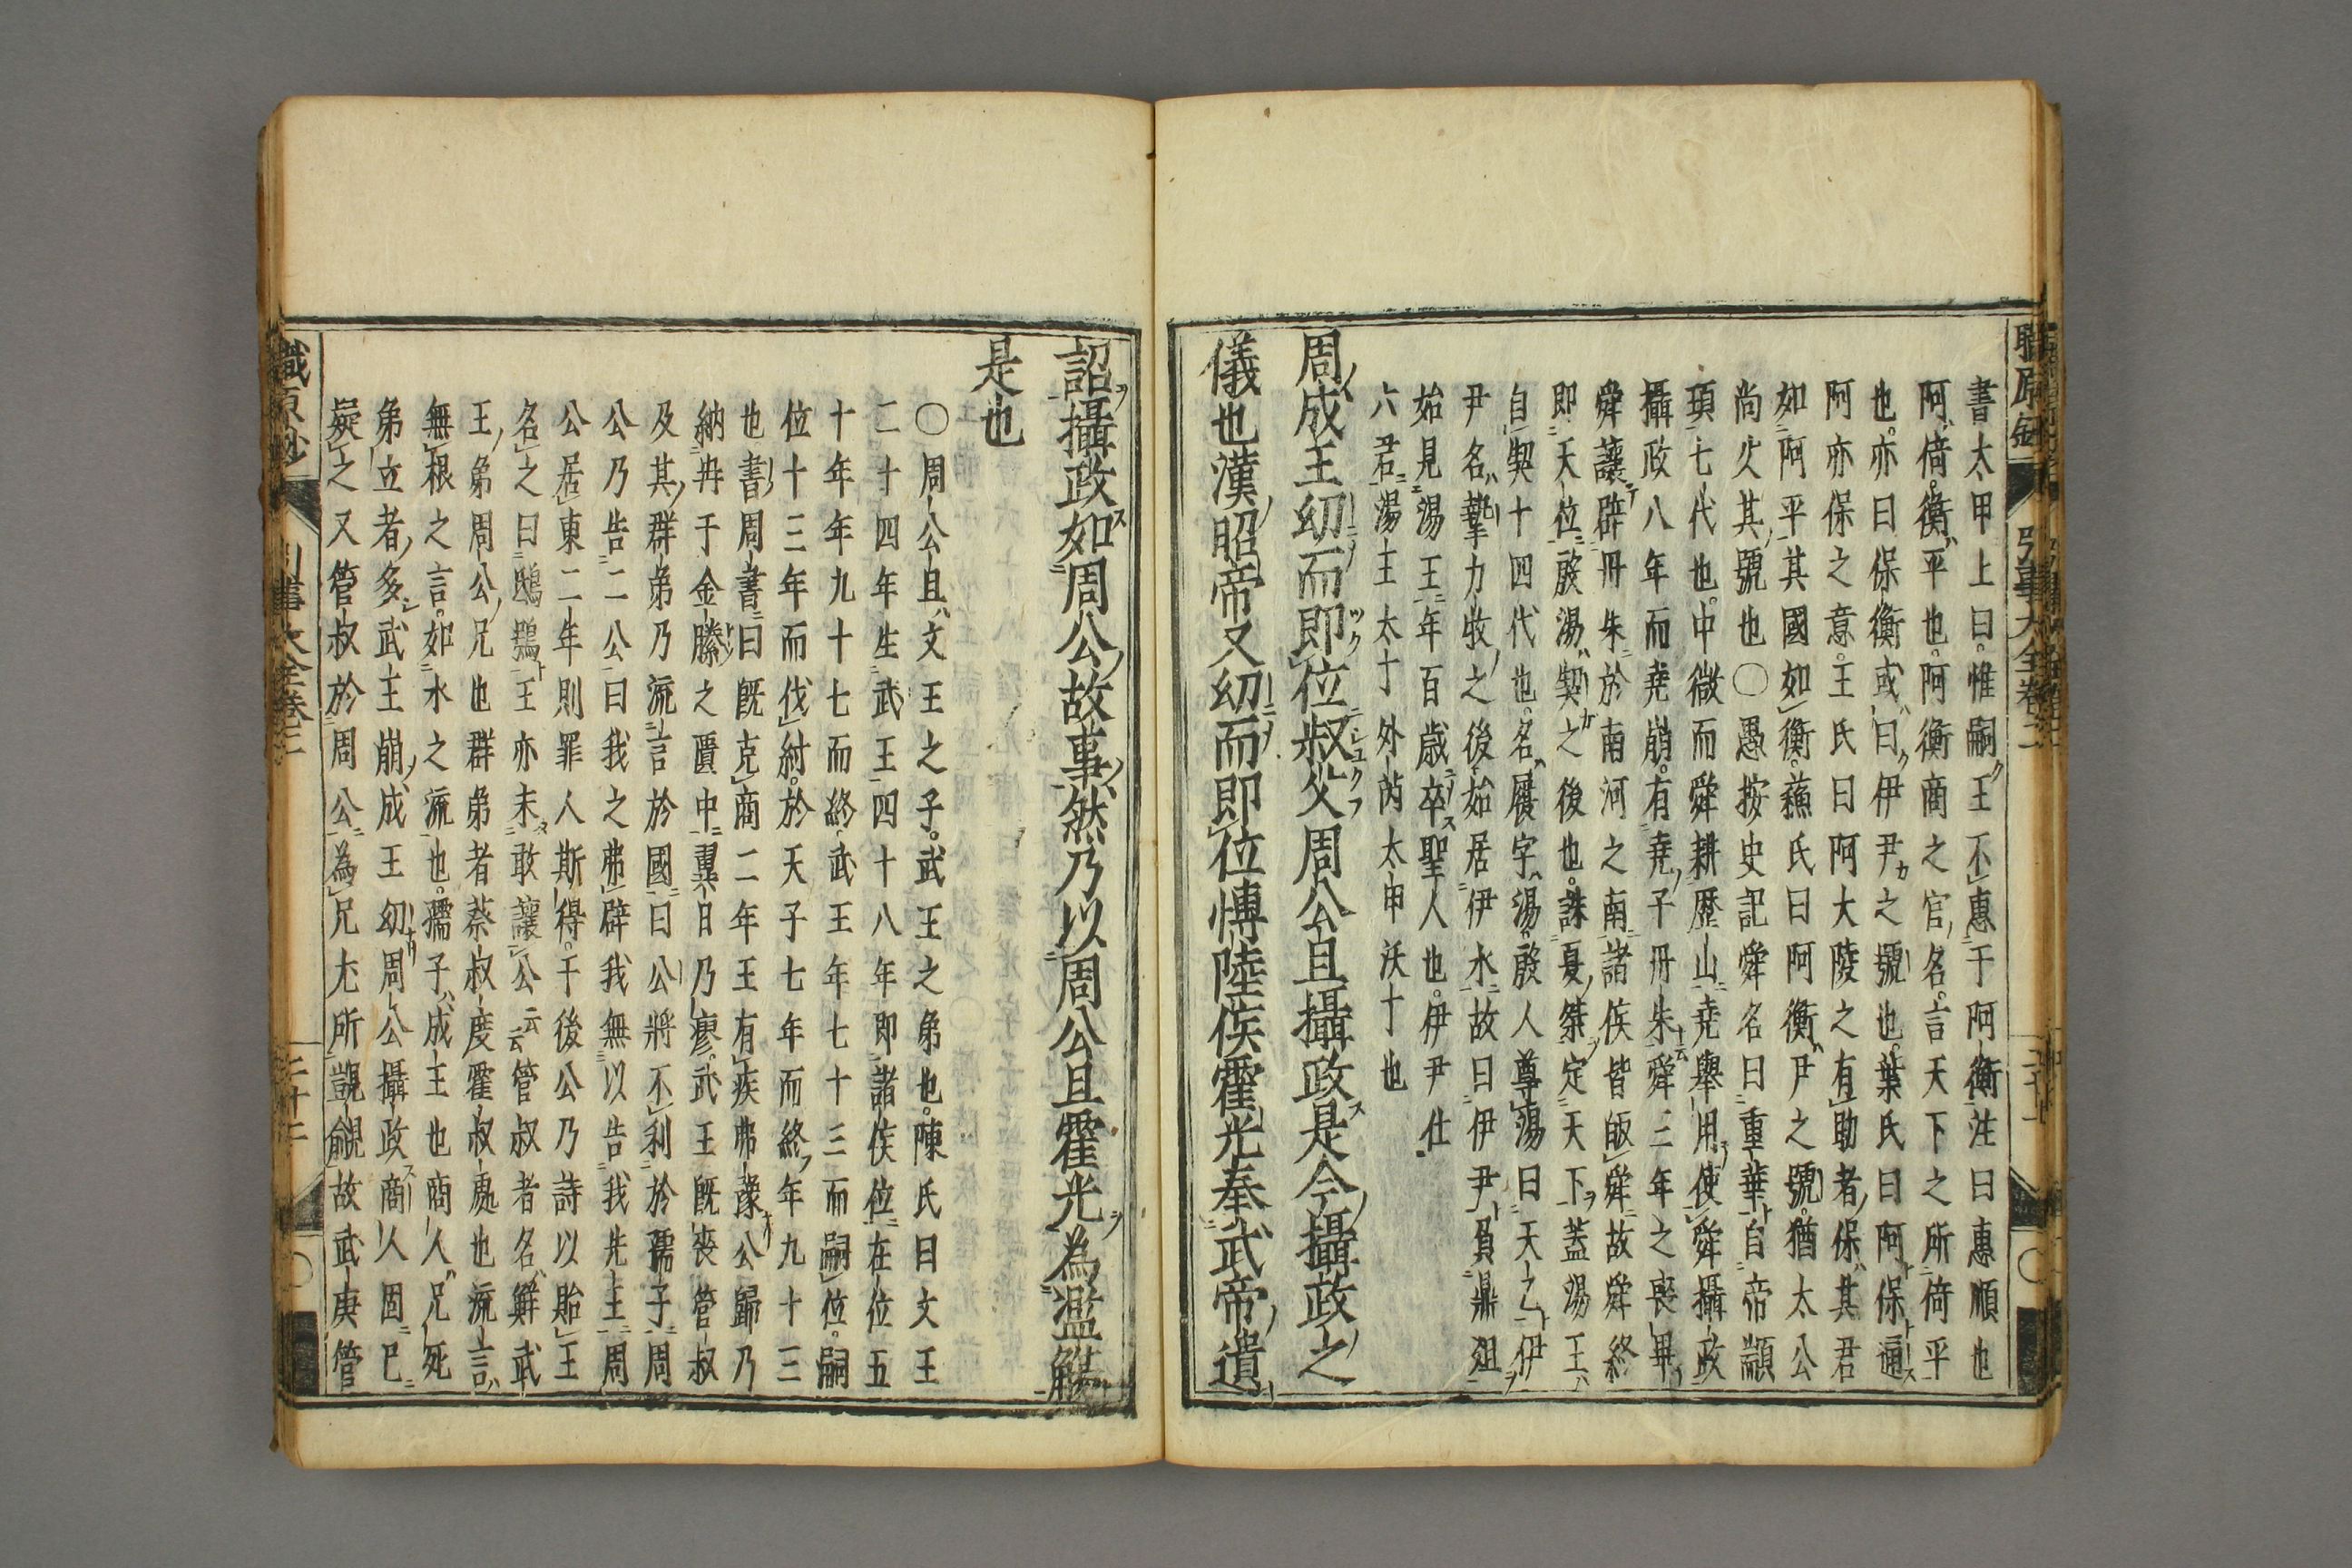 書太甲上曰惟嗣王不惠于阿衡注曰惠順也
阿倚衡平也阿衡商之官名言天下之所倚平
也亦曰保衡或曰伊尹之號也葉氏曰阿保逼
阿亦保之意王氏曰阿大陵之有助者保其君
如阿平其國如衡蘓氏曰阿衡尹之號猶太公
尚父其號也〇愚按史記舜名曰重華自帝顓
頊七代也中微而舜耕歷山堯舉用使舜攝政
攝政八年而堯崩有堯子丹朱舜三年之喪畢
舜讓辟丹朱於南河之南諸侯皆皈舜故舜終
即天位殷湯契之後也誅夏桀定天下蓋湯王
自契十四代也名履字湯殷人尊湯曰天之伊
尹名摯力牧之後始居伊水故曰伊尹負鼎俎
始見湯王年百歲卒聖人也伊尹仕
六君湯王太丁外丙太甲沃丁也
周成王幼而即位叔父周公旦攝政是今攝政之
儀也漢昭帝又幼而即位博陸侯霍光奉武帝遺
詔攝政如周公故事然乃以周公旦霍光為濫觴
是也
〇周公旦文王之子武王之弟也陳氏曰文王
二十四年生武王四十八年即諸侯位在位五
十年年九十七而終武王年七十三而嗣位嗣
位十三年而伐紂於天子七年而終年九十三
也書周書曰既克商二年王有疾弗豫公歸乃
納冊于金縢之匱中翼日乃瘳武王既喪管叔
及其群弟乃流言於國曰公將不利於孺子周
公乃告二公曰我之弗辟我無以告我先王周
公居東二年則罪人斯得于後公乃詩以貽王
名之曰鴟鴞王亦未敢讓公云云管叔者名鮮武
王弟周公兄也群弟者蔡叔度霍叔處也流言
無根之言如水之流也孺子成王也商人兄死
弟立者多武王崩成王幼周公攝政商人固已
疑之又管叔於周公為兄尤所覬覦故武庚管